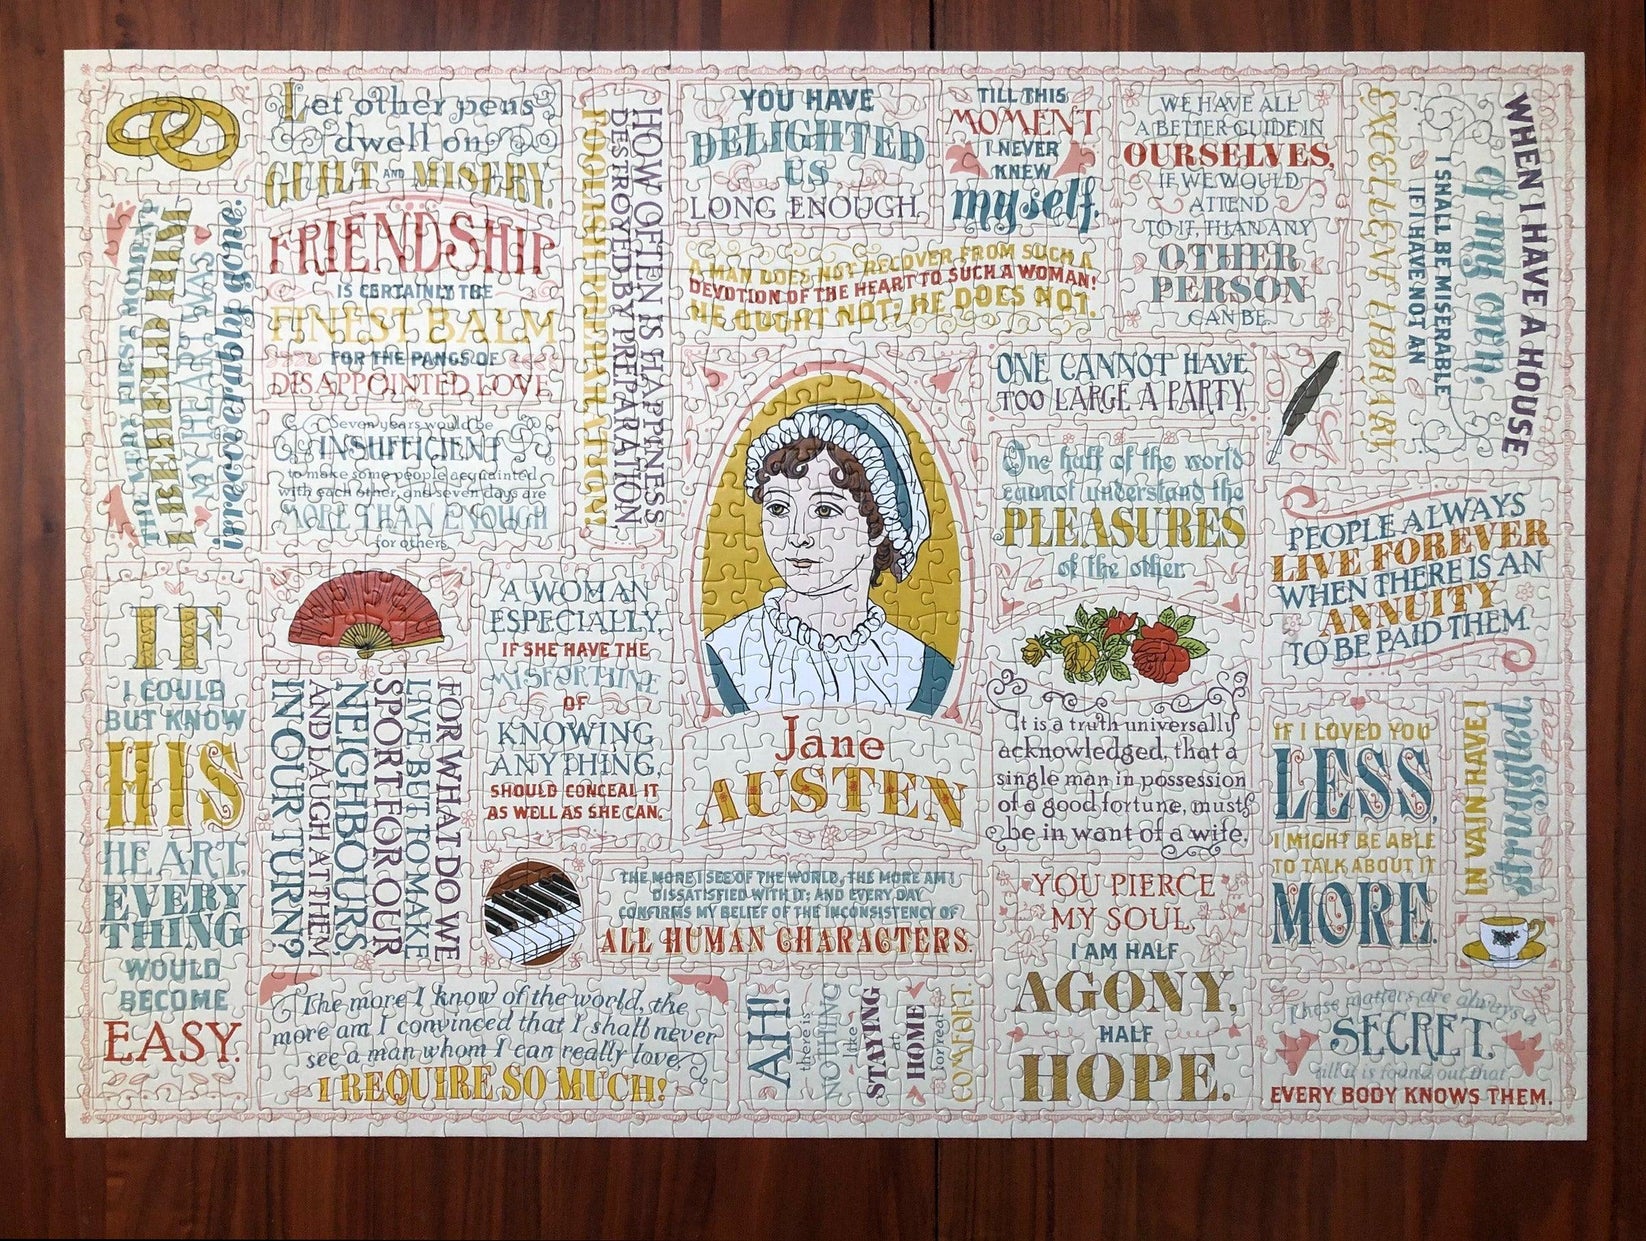 Let other pens
dwell on
GUILT AND MISERY.
THE VERY FIRST MOMENT
I BEHELD HIM
MY HEART WAS
irrecoverably gone.
FRIENDSHIP
IS CERTAINLY THE
FINEST BALM
FOR THE PANGS OF
DISAPPOINTED LOVE
Seven years would be
INSUFFICIENT
to make some people acquainted
with each other, and seven days are
MORE THAN ENOUGH
for others.
HOW OFTEN IS HAPPINESS
DESTROYED BY PREPARATION,
FOOLISH PREPARATION!
YOU HAVE
DELIGHTED
US
LONG ENOUGH.
TILL THIS
MOMENT
I NEVER
KNEW
myself.
WE HAVE ALL
A BETTER GUIDE IN
OURSELVES,
IF WE WOULD
ATTEND
TO IT, THAN ANY
OTHER
PERSON
CAN BE.
WHEN I HAVE A HOUSE
of my own,
I SHALL BE MISERABLE
IF I HAVE NOT AN
EXCELLENT LIBRARY
A MAN DOES NOT RECOVER FROM SUCH A
DEVOTION OF THE HEART TO SUCH A WOMAN!
HE OUGHT NOT; HE DOES NOT.
ONE CANNOT HAVE
TOO LARGE A PARTY.
One half of the world
cannot understand the
PLEASURES
of the other.
PEOPLE ALWAYS
LIVE FOREVER
WHEN THERE IS AN
ANNUITY
TO BE PAID THEM.
IF
I COULD
BUT KNOW
HIS
HEART,
EVERY
THING
WOULD
BECOME
EASY.
FOR WHAT DO WE
LIVE, BUT TO MAKE
SPORT FOR OUR
NEIGHBOURS,
AND LAUGH AT THEM
IN OUR TURN?
A WOMAN
ESPECIALLY,
IF SHE HAVE THE
MISFORTUNE
OF
KNOWING
ANYTHING,
SHOULD CONCEAL IT
AS WELL AS SHE CAN.
Jane
AUSTEN
It is a truth universally
acknowledged, that a
single man in possession
of a good fortune, must
be in want of a wife.
IF I LOVED YOU
LESS,
I MIGHT BE ABLE
TO TALK ABOUT IT
MORE.
IN VAIN HAVE I
struggled.
THE MORE I SEE OF THE WORLD, THE MORE AM I
DISSATISFIED WITH IT; AND EVERY DAY
CONFIRMS MY BELIEF OF THE INCONSISTENCY OF
ALL HUMAN CHARACTERS.
YOU PIERCE
MY SOUL.
I AM HALF
AGONY,
HALF
HOPE.
The more I know of the world, the
more am I convinced that I shall never
see a man whom I can really love.
I REQUIRE SO MUCH!
AH!
there is
NOTHING
like
STAYING
at
HOME
for real
COMFORT.
These matters are always a
SECRET,
till it is found out that
EVERY BODY KNOWS THEM.